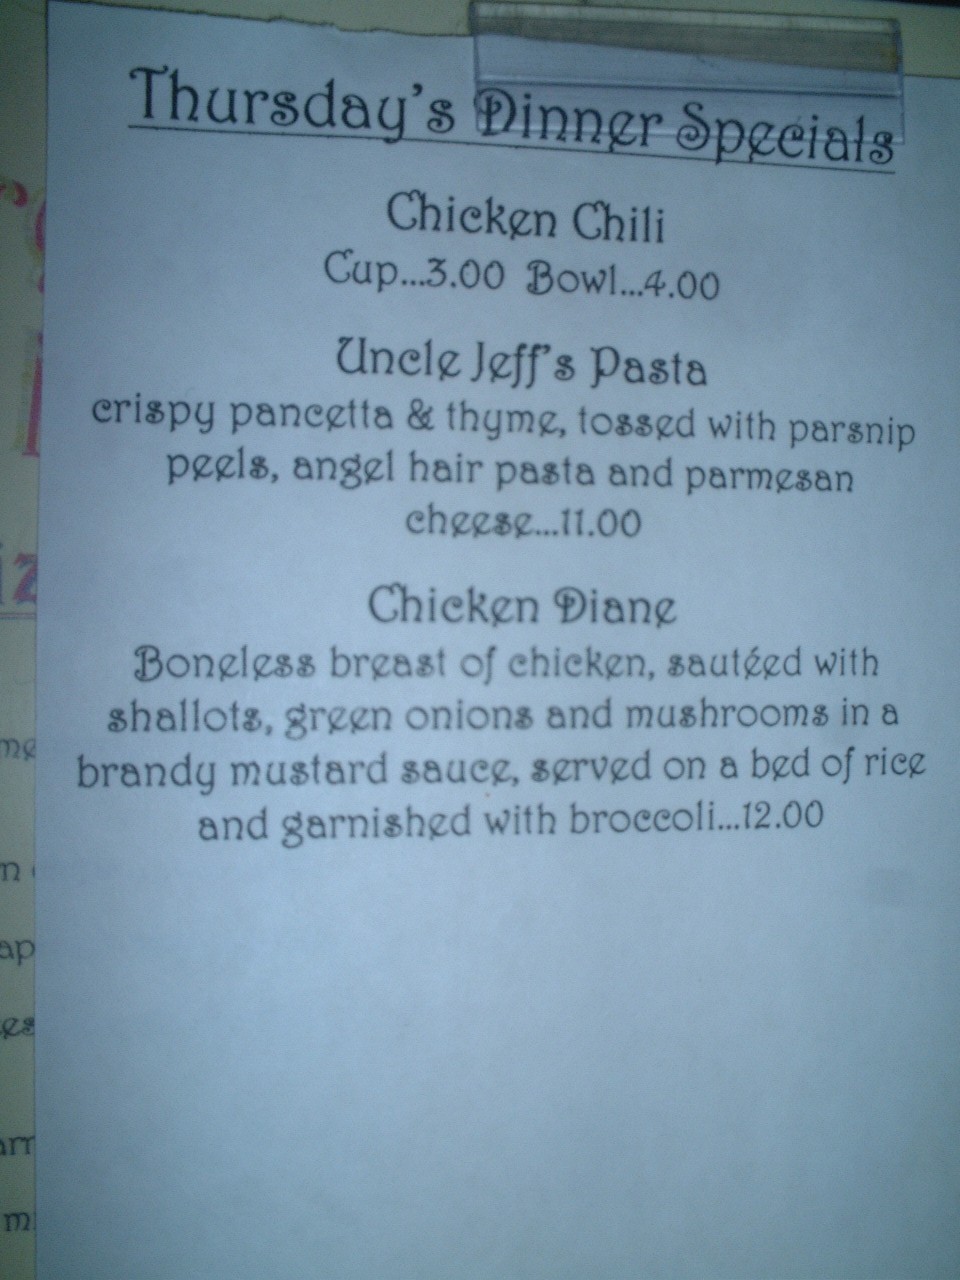 Thursday's Dinner Specials
Chicken Chili
Cup...3.00 Bowl...4.00
Uncle Jeff's Pasta
crispy pancetta & thyme, tossed with parsnip
peels, angel hair pasta and parmesan
cheese...11.00
Chicken Diane
Boneless breast of chicken, sautéed with
shallots, green onions and mushrooms in a
brandy mustard sauce, served on a bed of rice
and garnished with broccoli...12.00